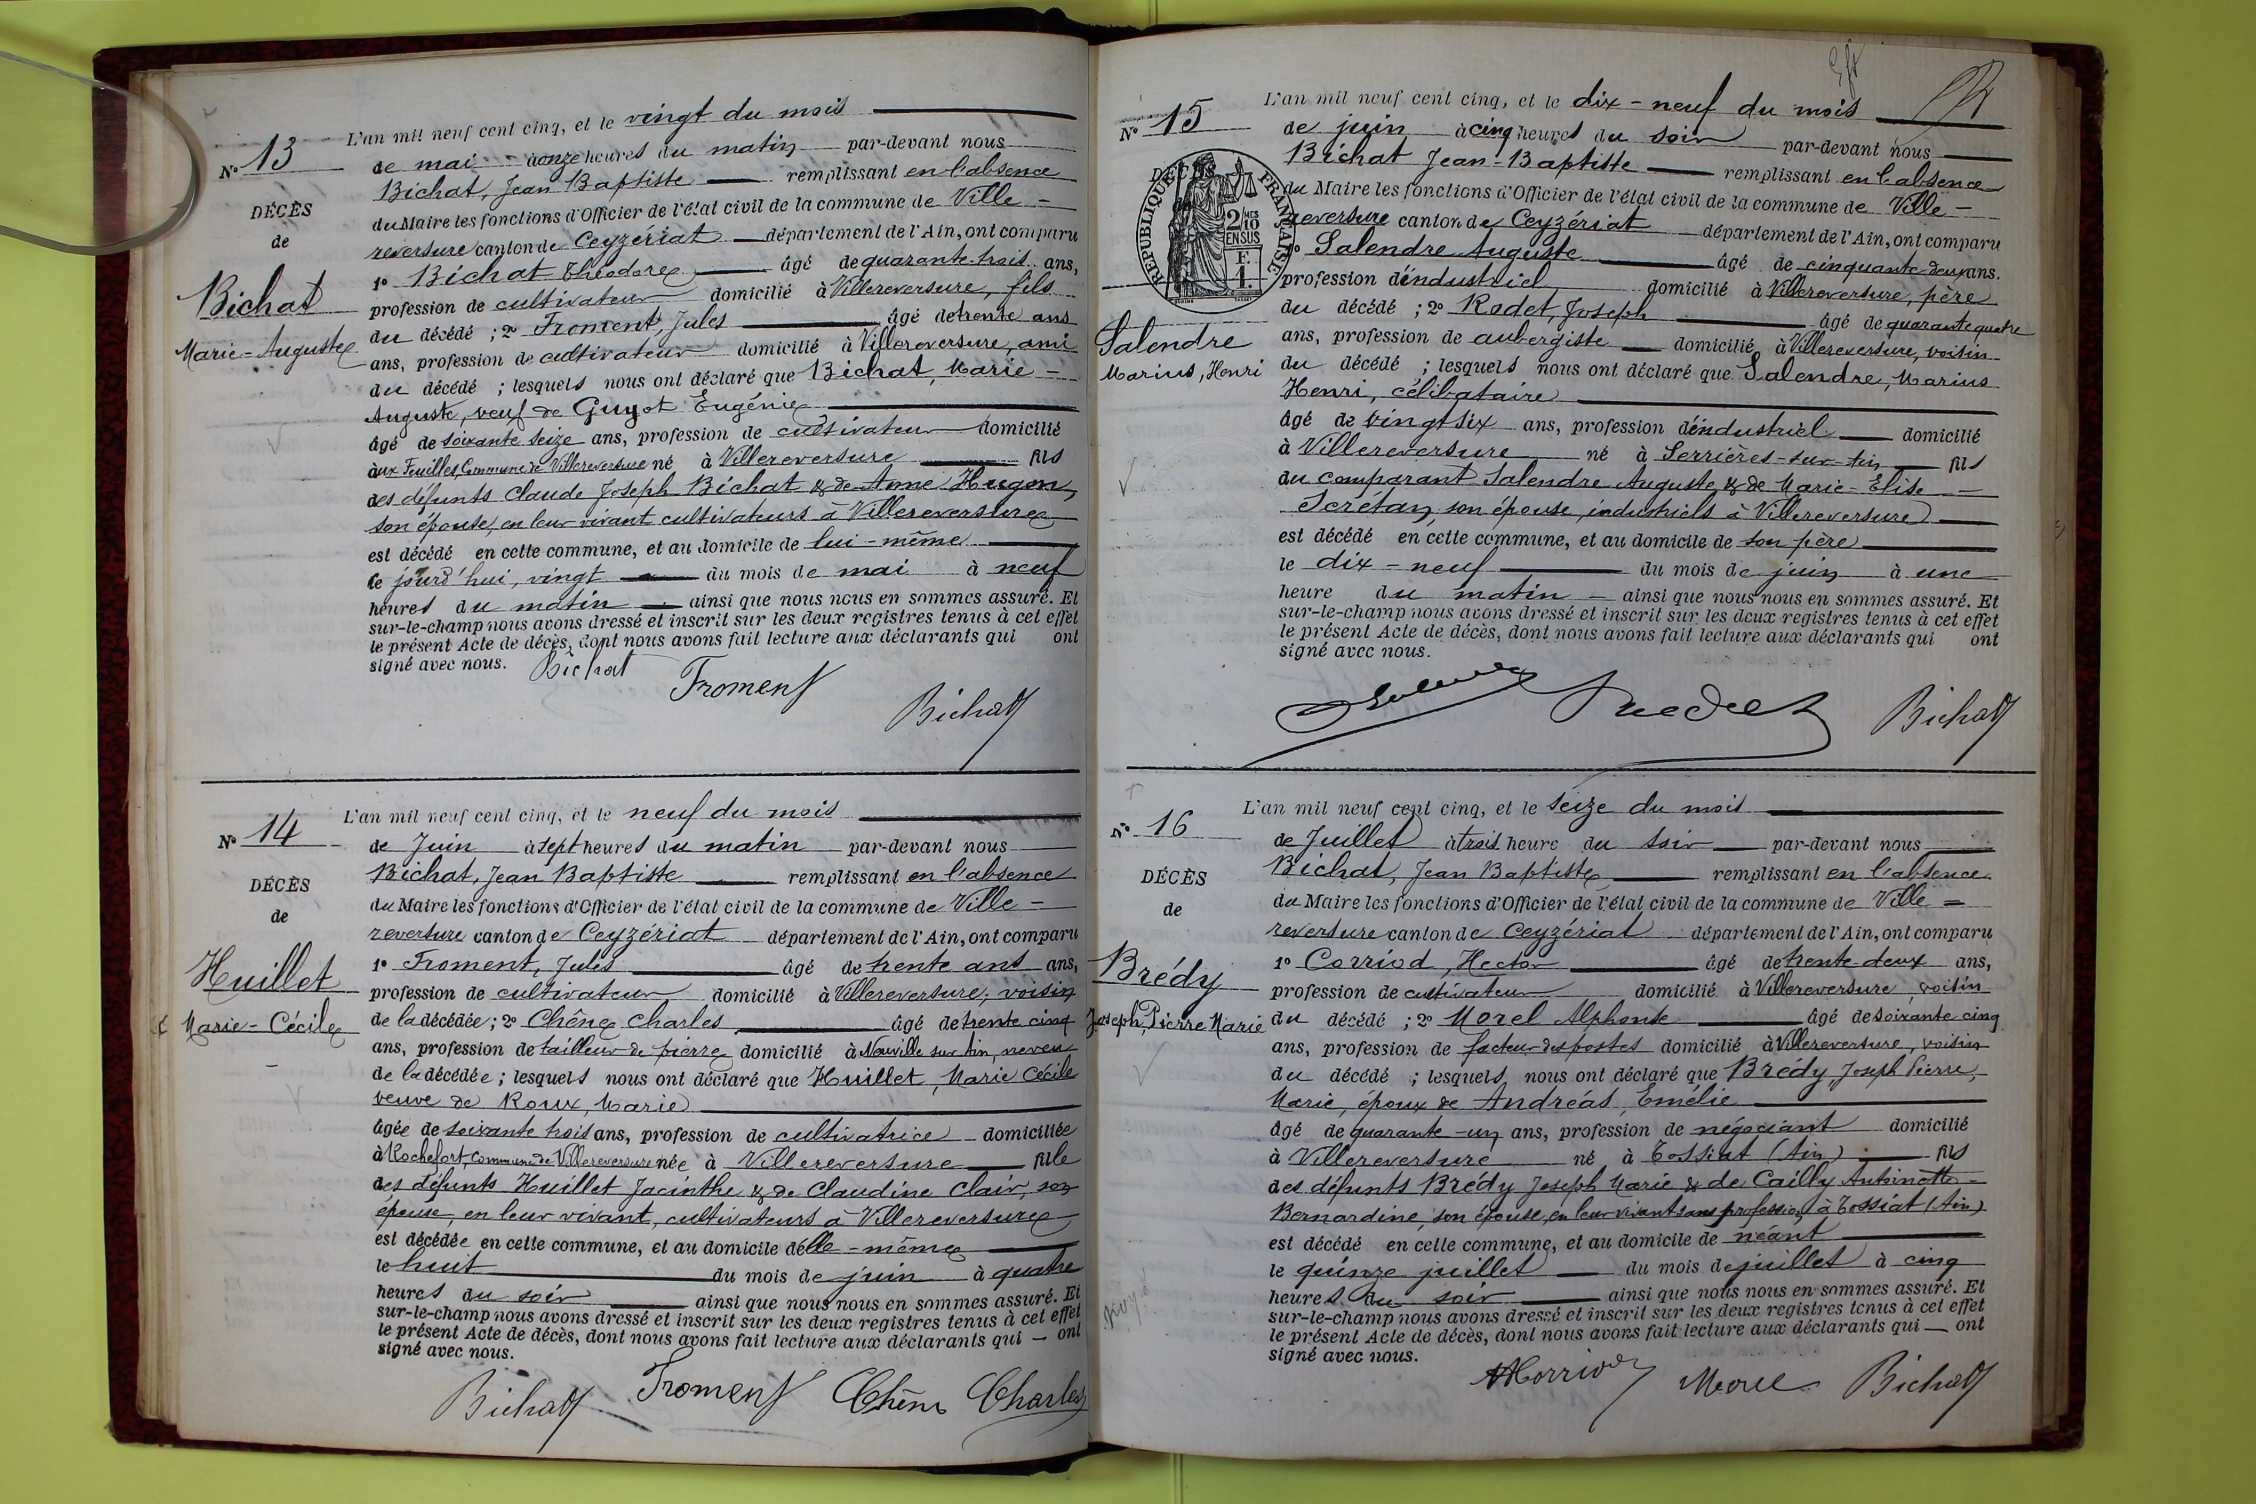 N° 13
DÉCÈS
de
Bichat
Marie-Auguste
L'an mil neuf cent cinq, et le vingt du mois
de mai à onze heures du matin par-devant nous
Bichat, Jean Baptiste remplissant en l'absence
du Maire les fonctions d'Officier de l'état civil de la commune de Ville-
reversure canton de Ceyzériat département de l'Ain, ont comparu
1° Bichat Théodore âgé de quarante-trois ans,
profession de cultivateur domicilié à Villereversure, fils
du décédé ; 2° Froment, Jules âgé de trente ans
ans, profession de cultivateur domicilié à Villereversure, ami
du décédé ; lesquels nous ont déclaré que Bichat, Marie-
Auguste, veuf de Guyot Eugénie
âgé de soixante seize ans, profession de cultivateur domicilié
aux Feuilles, Commune de Villereversure né à Villereversure fils
des défunts Claude Joseph Bichat & de Anne Hugon,
son épouse, en leur vivant cultivateurs à Villereversure
est décédé en cette commune, et au domicile de lui-même
ce jourd'hui, vingt du mois de mai à neuf
heures du matin ainsi que nous nous en sommes assuré. Et
sur-le-champ nous avons dressé et inscrit sur les deux registres tenus à cet effet
le présent Acte de décès, dont nous avons fait lecture aux déclarants qui ont
signé avec nous.
Bichat Froment Bichat
N° 14
DÉCÈS
de
Huillet
Marie-Cécile
L'an mil neuf cent cinq, et le neuf du mois
de Juin à sept heures du matin par-devant nous
Bichat, Jean Baptiste remplissant en l'absence
du Maire les fonctions d'Officier de l'état civil de la commune de Ville-
reversure canton de Ceyzériat département de l'Ain, ont comparu
1° Froment, Jules âgé de trente ans ans,
profession de cultivateur domicilié à Villereversure, voisin
de la décédée ; 2° Chêne Charles âgé de trente cinq
ans, profession de tailleur de pierre domicilié à Neuville sur Ain, neveu
de la décédée ; lesquels nous ont déclaré que Huillet, Marie Cécile
veuve de Roux, Marie
âgée de soixante trois ans, profession de cultivatrice domiciliée
à Rochefort, Commune de Villereversure née à Villereversure fille
des défunts Huillet Jacinthe & de Claudine Clair, son
épouse, en leur vivant, cultivateurs à Villereversure
est décédée en cette commune, et au domicile d'elle-même
le huit du mois de juin à quatre
heures du soir ainsi que nous nous en sommes assuré. Et
sur-le-champ nous avons dressé et inscrit sur les deux registres tenus à cet effet
le présent Acte de décès, dont nous avons fait lecture aux déclarants qui ont
signé avec nous.
Bichat Froment Chêne Charles
N° 15
DÉCÈS
RÉPUBLIQUE FRANÇAISE
2/10 MES
EN SUS
F.
1.
Salendre
Marius, Henri
L'an mil neuf cent cinq, et le dix-neuf du mois
de juin à cinq heures du soir par-devant nous
Bichat Jean-Baptiste remplissant en l'absence
du Maire les fonctions d'Officier de l'état civil de la commune de Ville-
reversure canton de Ceyzériat département de l'Ain, ont comparu
1° Salendre Auguste âgé de cinquante deux ans.
profession d'industriel, domicilié à Villereversure, père
du décédé ; 2° Rodet, Joseph âgé de quarante quatre
ans, profession de aubergiste domicilié à Villereversure, voisin
du décédé ; lesquels nous ont déclaré que Salendre, Marius
Henri, célibataire
âgé de vingt six ans, profession d'industriel domicilié
à Villereversure né à Serrières-sur-Ain fils
du comparant Salendre Auguste & de Marie-Elise
Scrétan, son épouse, industriels à Villereversure
est décédé en cette commune, et au domicile de son père
le dix-neuf du mois de juin à une
heure du matin ainsi que nous nous en sommes assuré. Et
sur-le-champ nous avons dressé et inscrit sur les deux registres tenus à cet effet
le présent Acte de décès, dont nous avons fait lecture aux déclarants qui ont
signé avec nous.
Bichat
N° 16
DÉCÈS
de
Brédy
Joseph, Pierre Marie
L'an mil neuf cent cinq, et le seize du mois
de Juillet à trois heure du soir par-devant nous
Bichat, Jean Baptiste remplissant en l'absence
du Maire les fonctions d'Officier de l'état civil de la commune de Ville-
reversure canton de Ceyzériat département de l'Ain, ont comparu
1° Corriod, Hector âgé de trente-deux ans,
profession de cultivateur domicilié à Villereversure, voisin
du décédé ; 2° Morel Alphonse âgé de soixante cinq
ans, profession de facteur des postes domicilié à Villereversure, voisin
du décédé ; lesquels nous ont déclaré que Brédy, Joseph Pierre,
Marie, époux de Andréas, Emélie
âgé de quarante-un ans, profession de négociant domicilié
à Villereversure né à Tossiat (Ain) fils
des défunts Brédy Joseph Marie & de Cailly Antoinette-
Bernardine, son épouse, en leur vivant sans profession, à Tossiat (Ain)
est décédé en cette commune, et au domicile de néant
le quinze juillet du mois de juillet à cinq
heures du soir ainsi que nous nous en sommes assuré. Et
sur-le-champ nous avons dressé et inscrit sur les deux registres tenus à cet effet
le présent Acte de décès, dont nous avons fait lecture aux déclarants qui ont
signé avec nous.
Morel Bichat